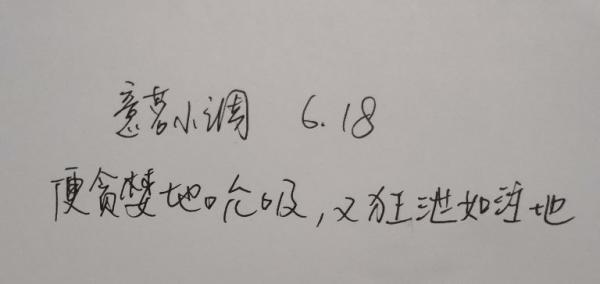 意茗小调 6.18
便贪婪地吮吸，又狂泄如注地